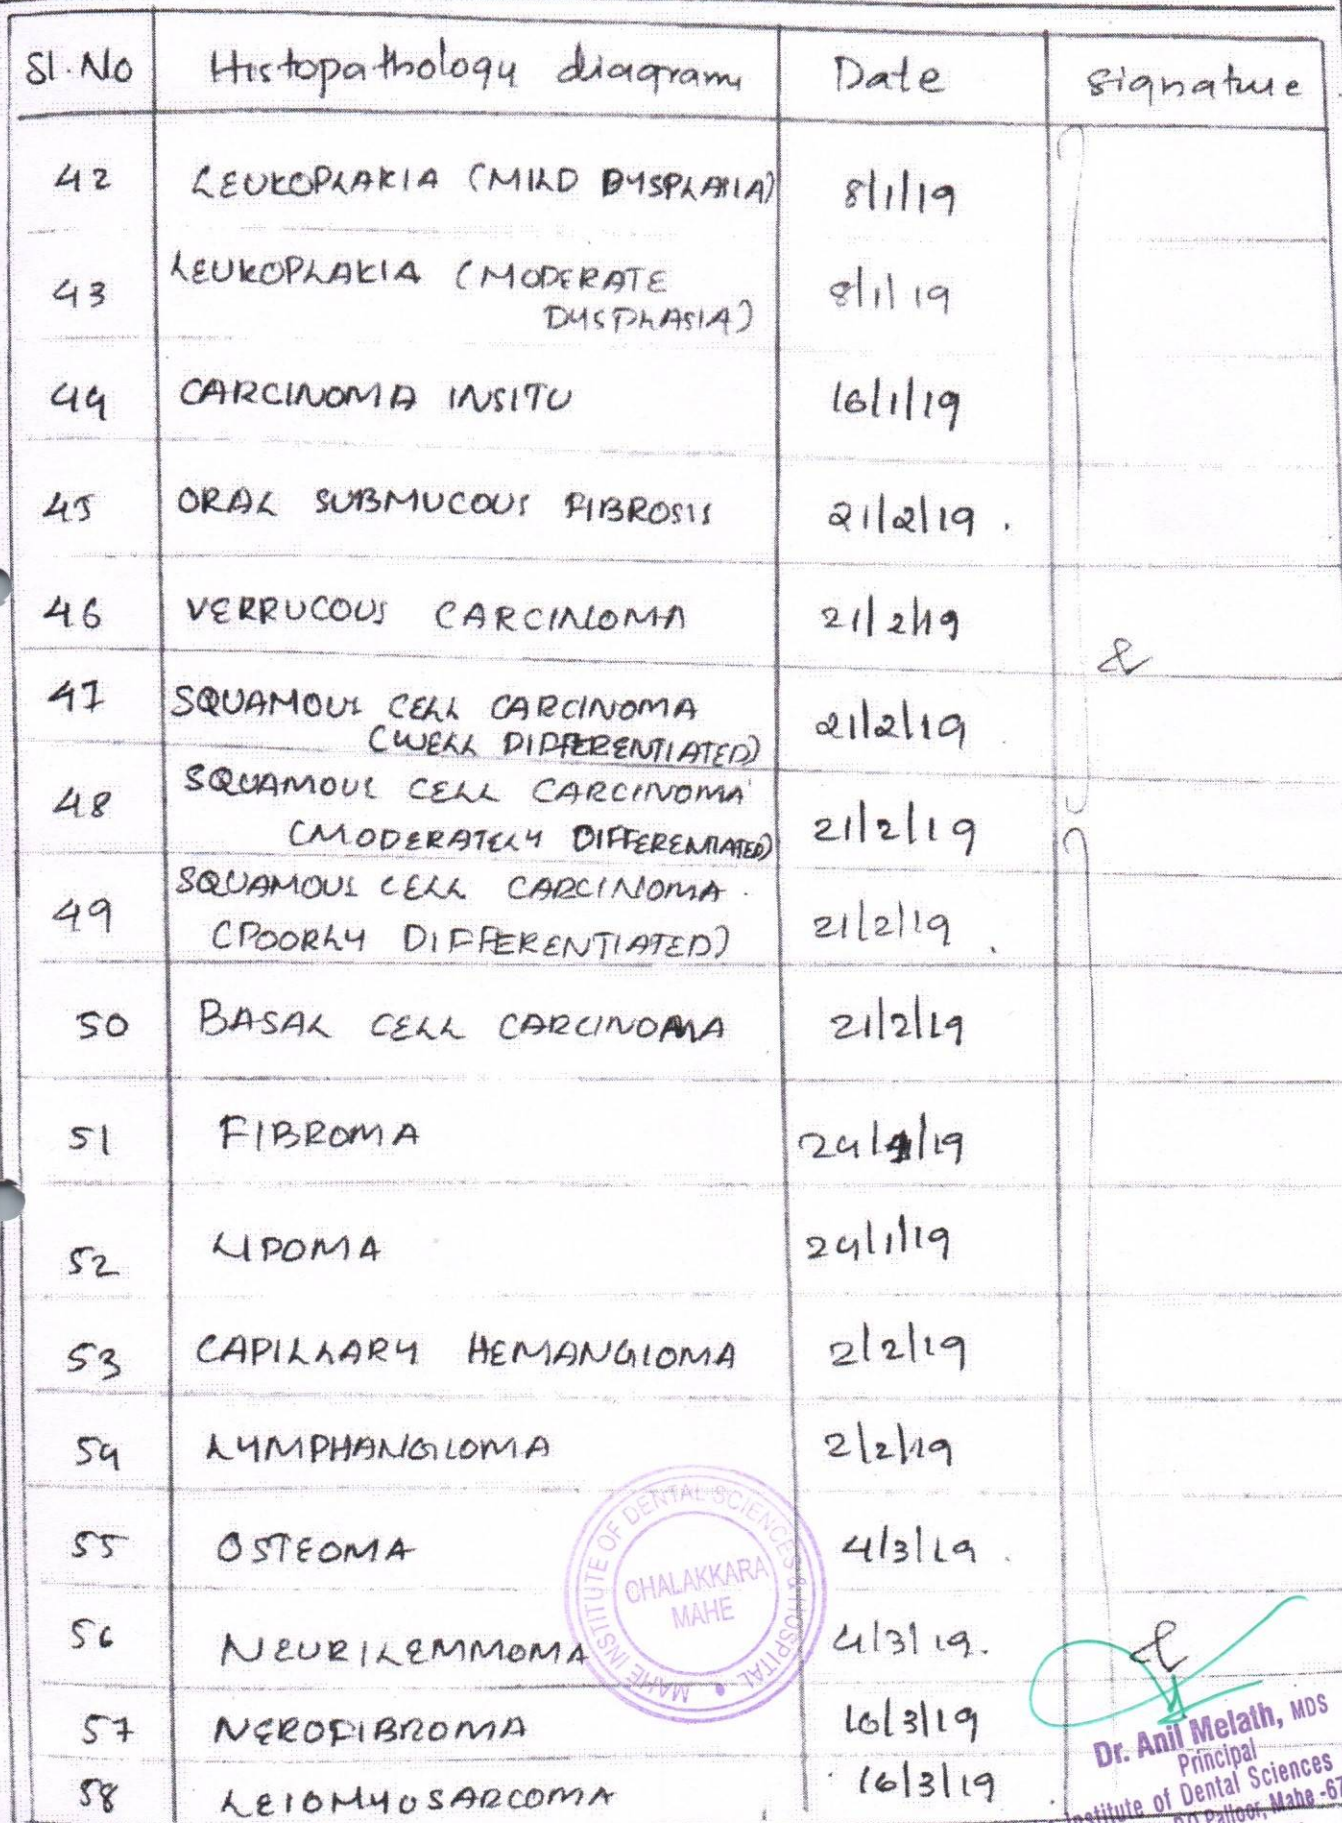 Sl. No Histopathology diagram Date signature
42 LEUKOPLAKIA (MILD DYSPLASIA) 8/1/19
43 LEUKOPLAKIA (MODERATE
DYSPLASIA) 8/1/19
44 CARCINOMA INSITU 16/1/19
45 ORAL SUBMUCOUS FIBROSIS 21/2/19.
46 VERRUCOUS CARCINOMA 21/2/19
47 SQUAMOUS CELL CARCINOMA
(WELL DIFFERENTIATED) 21/2/19
48 SQUAMOUS CELL CARCINOMA
(MODERATELY DIFFERENTIATED) 21/2/19
49 SQUAMOUS CELL CARCINOMA
(POORLY DIFFERENTIATED) 21/2/19
50 BASAL CELL CARCINOMA 21/2/19
51 FIBROMA 24/1/19
52 LIPOMA 24/1/19
53 CAPILLARY HEMANGIOMA 2/2/19
54 LYMPHANGIOMA 2/2/19
55 OSTEOMA 4/3/19.
56 NEURILEMMOMA 4/3/19.
57 NEROFIBROMA 16/3/19
58 LEIOMYOSARCOMA 16/3/19
MAHE INSTITUTE OF DENTAL SCIENCES & HOSPITAL
CHALAKKARA
MAHE
Dr. Anil Melath, MDS
Principal
Institute of Dental Sciences
P.O Palloor, Mahe -67